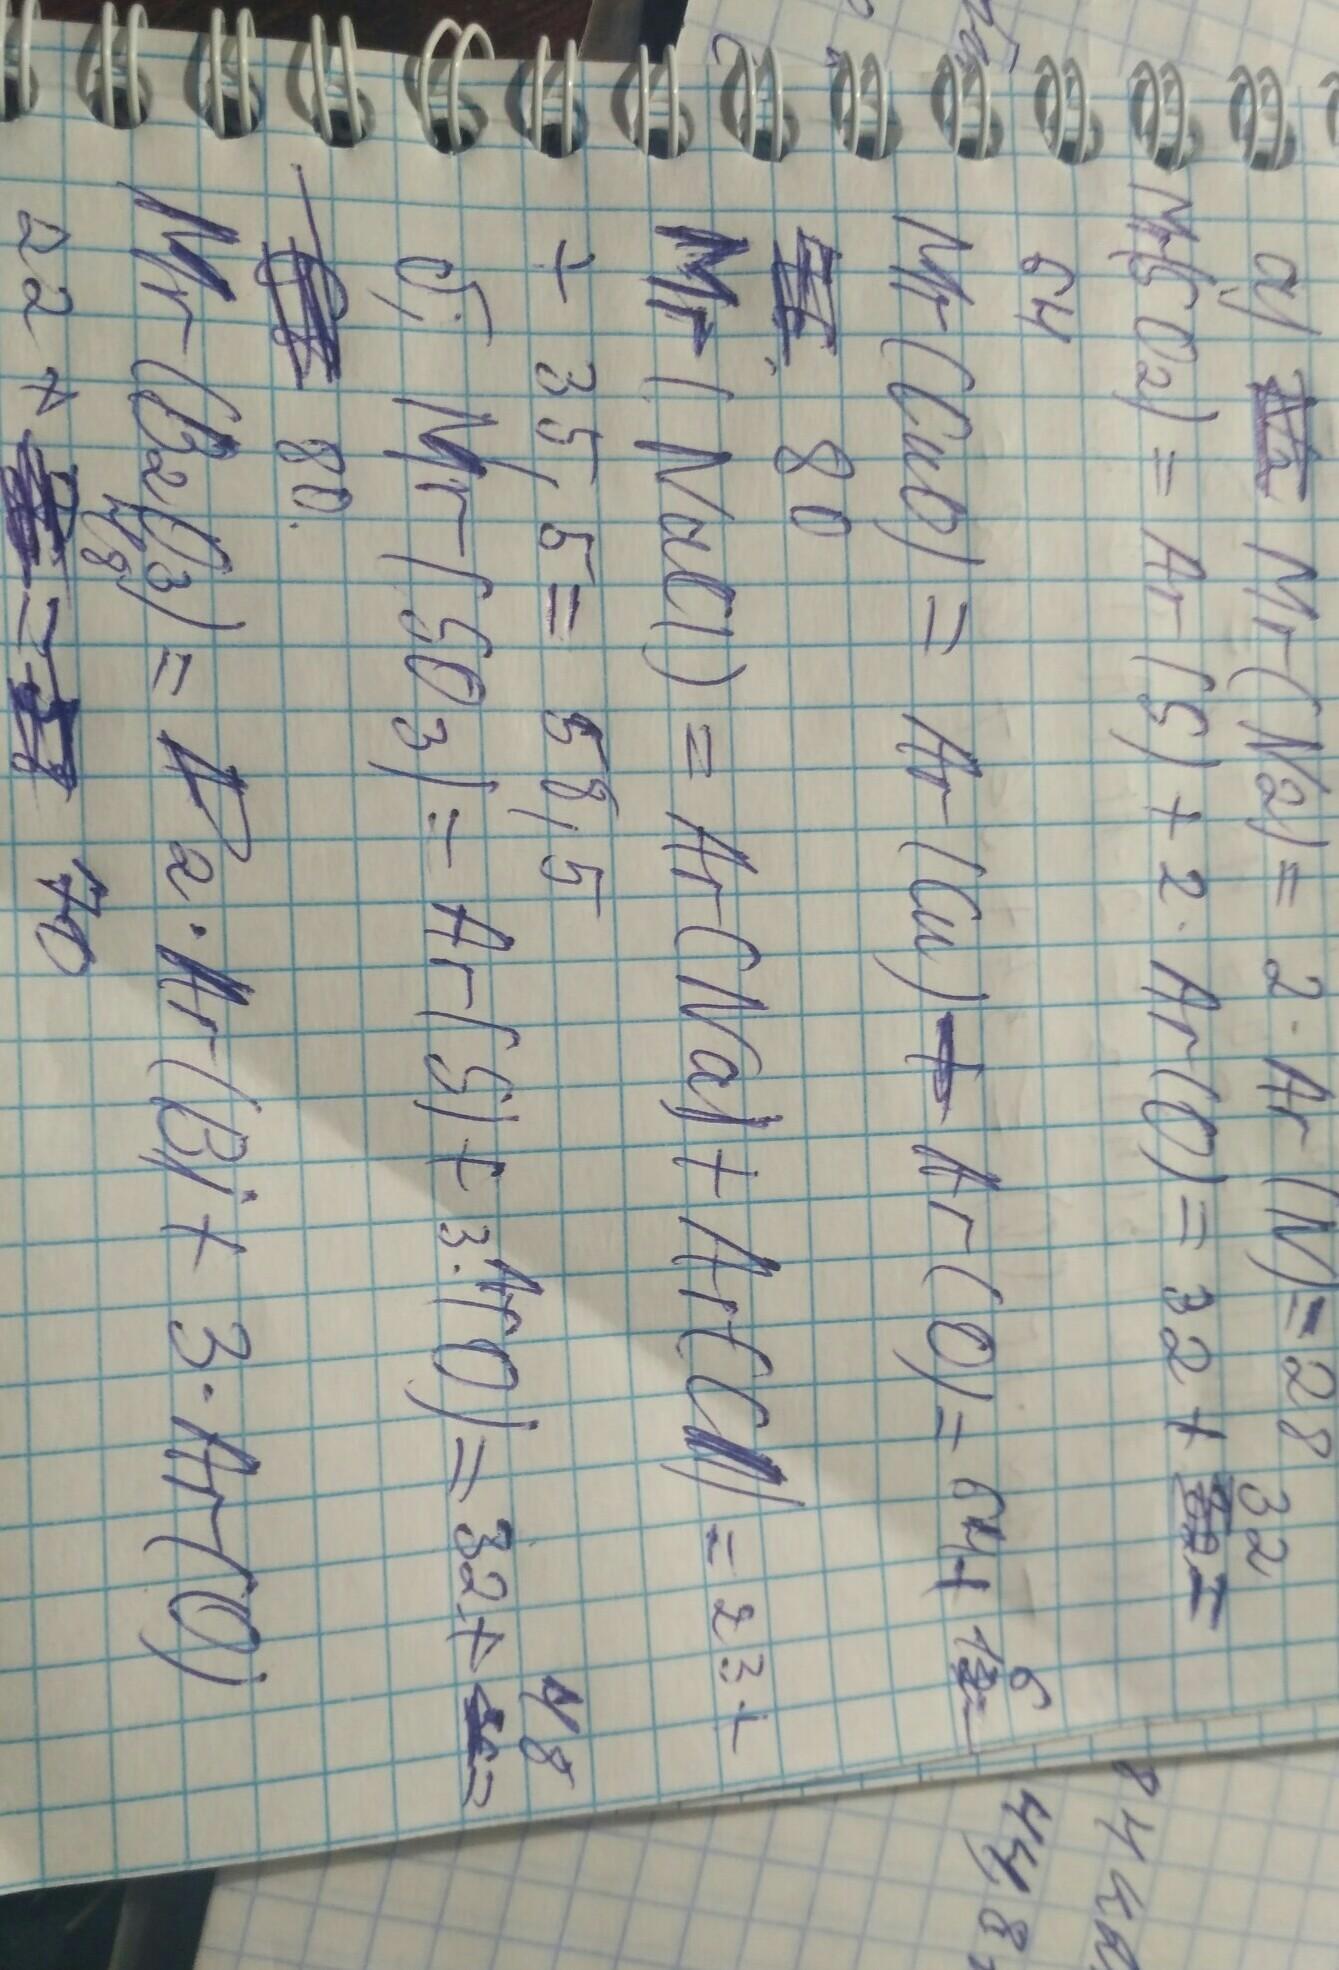 а) Mr(N2) = 2·Ar(N) = 28
Mr(SO2) = Ar(S) + 2·Ar(O) = 32 + 32
64
Mr(CuO) = Ar(Cu) + Ar(O) = 64 + 16
80
Mr(NaCl) = Ar(Na) + Ar(Cl) = 23 +
+ 35,5 = 58,5
б) Mr(SO3) = Ar(S) + 3·Ar(O) = 32 + 48 =
80.
Mr(B2O3) = 2·Ar(B) + 3·Ar(O)
22 + 48 = 70